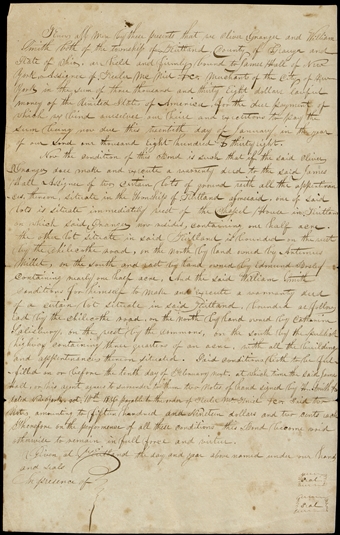 Know all men by these presents that we Oliver Granger and William
Smith both of the township of Kirtland County of Geauga and
State of Ohio, are held and firmly bound to James Hall of New
York assignee of Keeler Mc Mid & Co Merchant of the City of New
York in the sum of three thousand and thirty eight dollars lawful
money of the United States of America. For the due payment of
which we bind ourselves our heirs and executors to pay the
sum being now due this twentieth day of January in the year
of our Lord one thousand eight hundred & thirty eight.
Now the condition of this Bond is such that if the said Oliver
Granger does make and execute a warranty deed to the said James
Hall Assignee of two certain lots of ground with all the appurtenan
ces, thereon, situate in the Township of Kirtland aforesaid, one of said
lots is situate immediately west of the Chapel House in Kirtland
in which said Granger now resides, containing one half acre.
The other lot situate in said Kirtland is bounded on the west
by the Chillicothe road, on the North by land owned by Artemus
Millet, on the south and east by land owned by Edmund Bosly
Containing nearly one half acre. And the said William Smith
Conditions for himself to make and execute a warrantee deed
of a certain lot situate in said Kirtland, & bounded as follows
East by the Chillicothe road, on the North by land owned by
Salisbury, on the west by the commons, on the south by the publick
highway containing three quarters of an acre, with all the buildings
and appurtenances thereon situated. Said conditions to be ful
filled on or before the tenth day of February next, at which time the said James
Hall, on his part agrees to surrender two Notes of hand signed by
dated 1836 payable to the order of Keeler Mc Mid & Co said two
Notes, amounting to fifteen hundred and Nineteen dollars and two cents each
Therefore on the performance of all these conditions this Bond becomes void
otherwise to remain in full force and virtue.
Given at Kirtland the day and year above named under our hands
and seals
In presence of
Seal
Seal